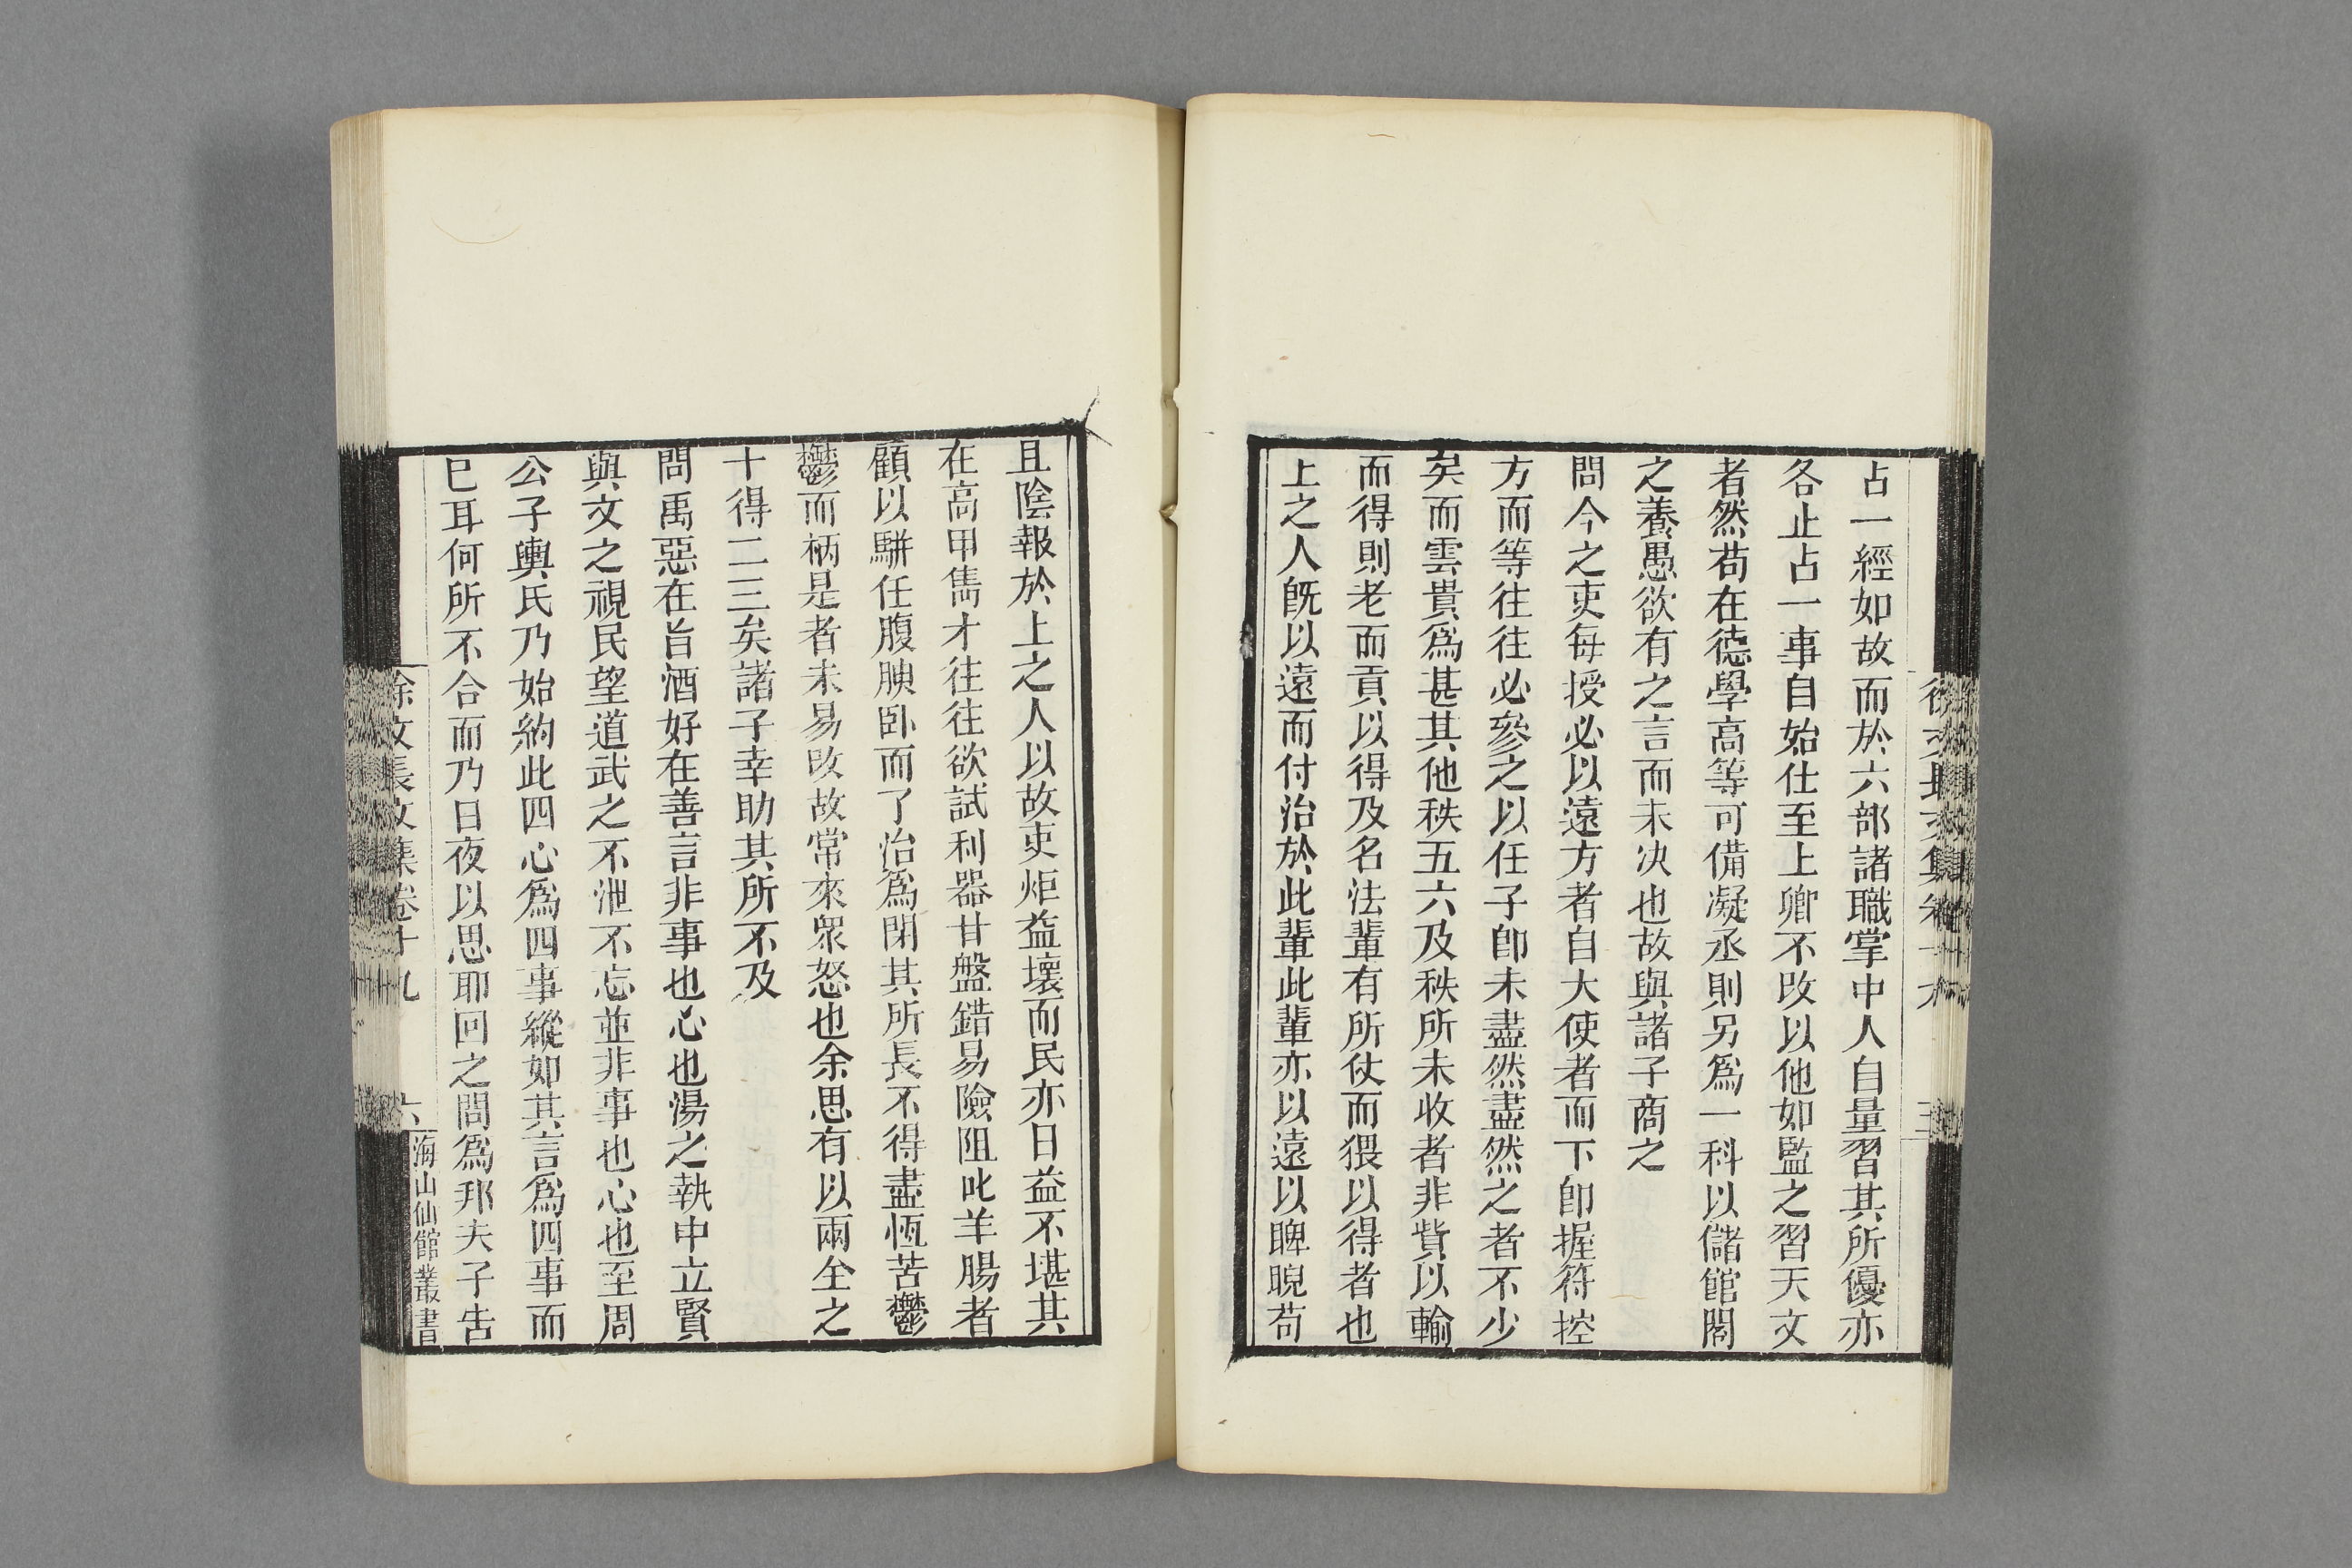 占一經如故而於六部諸職掌中人自量習其所優亦
各止占一事自始仕至上卿不改以他如監之習天文
者然苟在德學高等可備凝丞則另爲一科以儲館閣
之養愚欲有之言而未決也故與諸子商之
問今之吏每授必以遠方者自大使者而下卽握符控
方而等往往必參之以任子卽未盡然盡然之者不少
矣而雲貴爲甚其他秩五六及秩所未收者非貲以輸
而得則老而貢以得及名法輩有所仗而猥以得者也
上之人旣以遠而付治於此輩此輩亦以遠以睥睨苟
且陰報於上之人以故吏炬益壞而民亦日益不堪其
在高甲雋才往往欲試利器甘盤錯易險阻叱羊腸者
顧以駢任腹腴卧而了治爲閉其所長不得盡恆苦鬱
鬱而柄是者未易改故常來衆怒也余思有以兩全之
十得二三矣諸子幸助其所不及
問禹惡在旨酒好在善言非事也心也湯之執中立賢
與文之視民望道武之不泄不忘並非事也心也至周
公子輿氏乃始約此四心爲四事縱如其言爲四事而
巳耳何所不合而乃日夜以思耶回之問爲邦夫子告
徐文長文集卷十九
六
海山仙館叢書